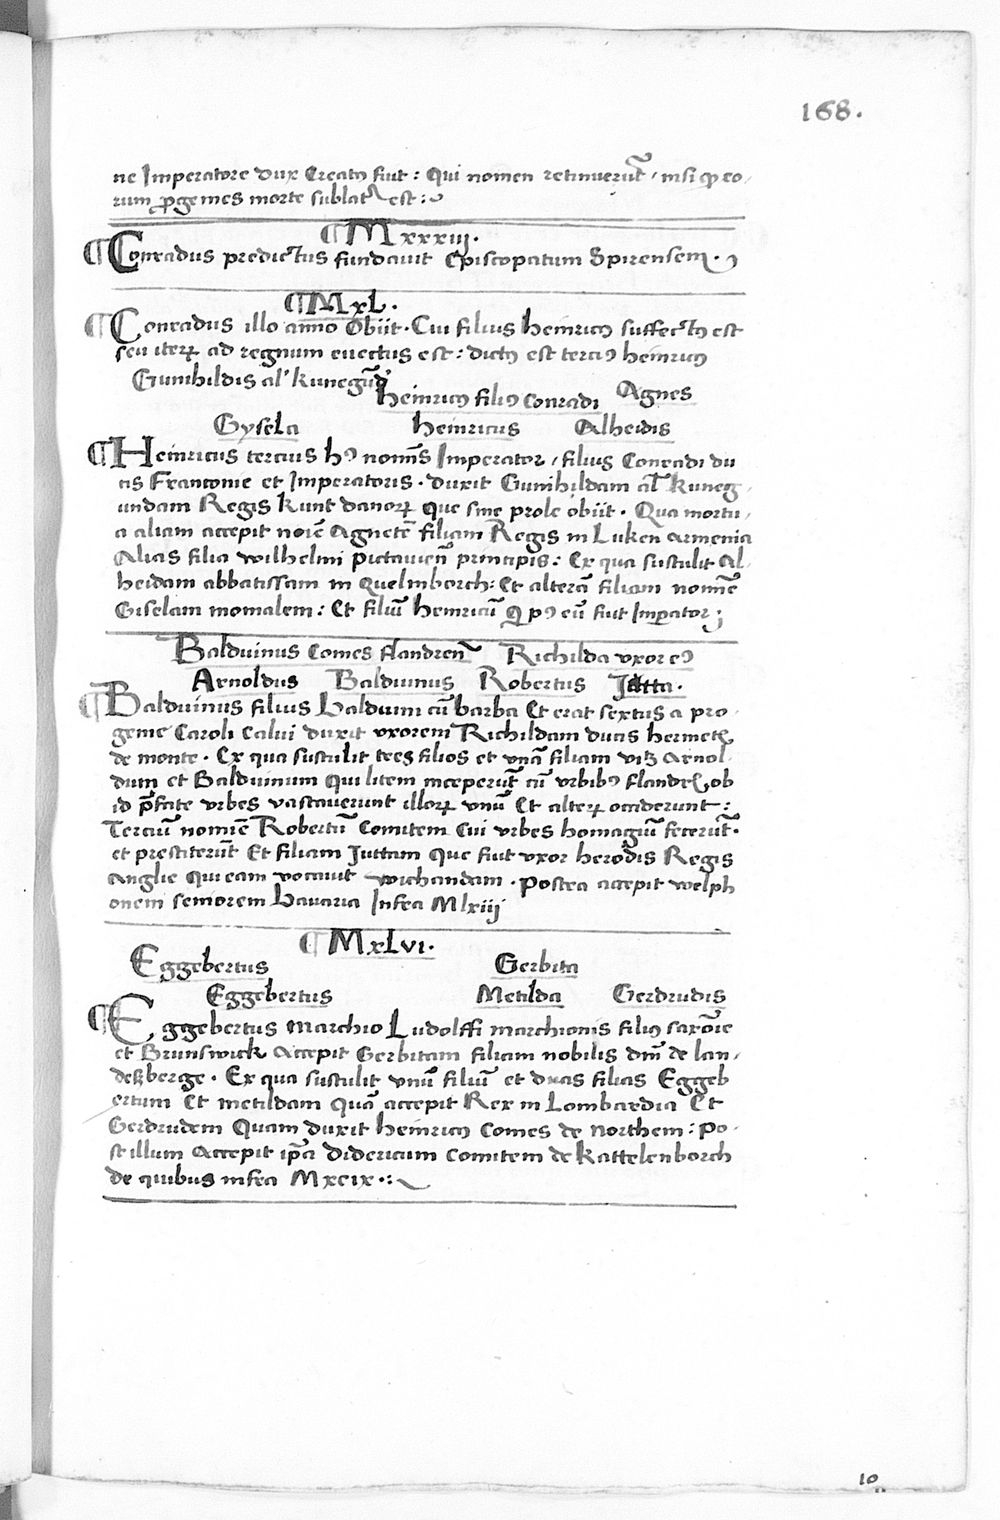 168.
ne Imperatore dux Creatꝰ fuit : Qui nomen retinuerūt / nisi ꝙ eo-
rum ꝓgenies morte sublatᷣ est :
¶ Mxxxiij.
¶ Conradus predictus fundavit Episcopatum Spirensem.
¶ MxL.
¶ Conradus illo anno Obiit. Cui filius heinricꝰ suffectꝰ est
seu iterꝝ ad regnum euectus est : dictꝰ est terciꝰ heinricꝰ
Gunhildis al' kunegūd'
heinricꝰ filiꝰ Conradi Agnes
Gysela heinricus Alheidis
¶ Heinricus tercius hꝰ nomīs Imperator / filius Conradi du
cis Franconie et Imperatoris. duxit Gunhildam al' kuneg-
undam Regis kunt danorꝝ que sine prole obiit. Qua mortu-
a aliam accepit noīe Agnetē filiam Regis in Luken armenia
Alias filia wilhelmi pictauieñ principis : Ex qua sustulit Al-
heidam abbatissam in Quelinborch : Et alterā filiam nomīe
Giselam monialem : Et filiū heinricū Q pꝰ eū fuit Imꝑator ;
Balduinus Comes flandreñ Richilda vxor eꝰ
Arnoldus Balduinus Robertus Jutta.
¶ Balduinus filius Balduini cū barba Et erat sextus a pro-
genie Caroli Calui duxit vxorem Richildam ducis hermeten
de monte. Ex qua sustulit tres filios et vnā filiam vꝫ Arnol-
dum et Balduinum Qui litem inceperūt cū vrbibꝰ flandrie, ob
id p̄fate vrbes vastauerunt illorꝝ vnū Et alterꝝ occiderunt :
Terciū nomīe Robertū Comitem Cui vrbes homagiū fecerūt.
et prestiterūt Et filiam Juttam Que fuit vxor herodis Regis
Anglie qui eam vocauit wichandam. Postea accepit welph
onem seniorem Bavaria Infra Mlxiiij
¶ MxLvi.
Eggebertus Gerbita
Eggebertus Metilda Gerdrudis
¶ Eggebertus Marchio Ludolffi marchionis filiꝰ saxōie
et Brunswick Accepit Gerbitam filiam nobilis dn̄i de lan-
deßberge. Ex qua sustulit vnū filiū et duas filias Eggeb
ertum Et metildam Quā accepit Rex in Lombardia Et
Gerdrudem Quam duxit heinricꝰ Comes de northem : Po-
st illum Accepit ip̄a Didericum Comitem de kattelenborch
de quibus infra Mxcix.
10